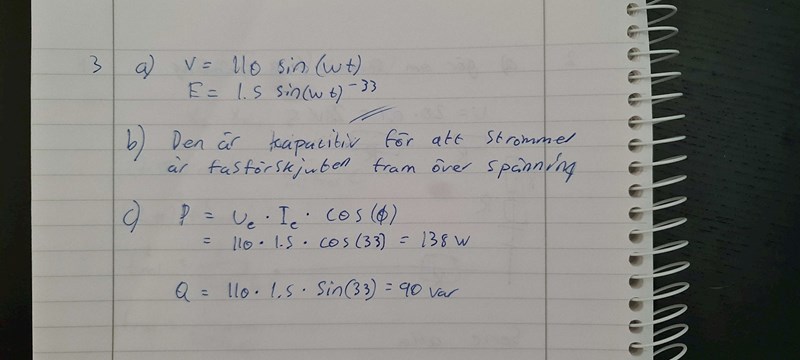 3 a) V = 110 sin(wt)
E = 1.5 sin(wt)-33
b) Den är kapacitiv för att strömmen
är fasförskjuten fram över spänning
c) P = Ue · Ie · cos(ϕ)
= 110 · 1.5 · cos(33) = 138 W
Q = 110 · 1.5 · sin(33) = 90 var